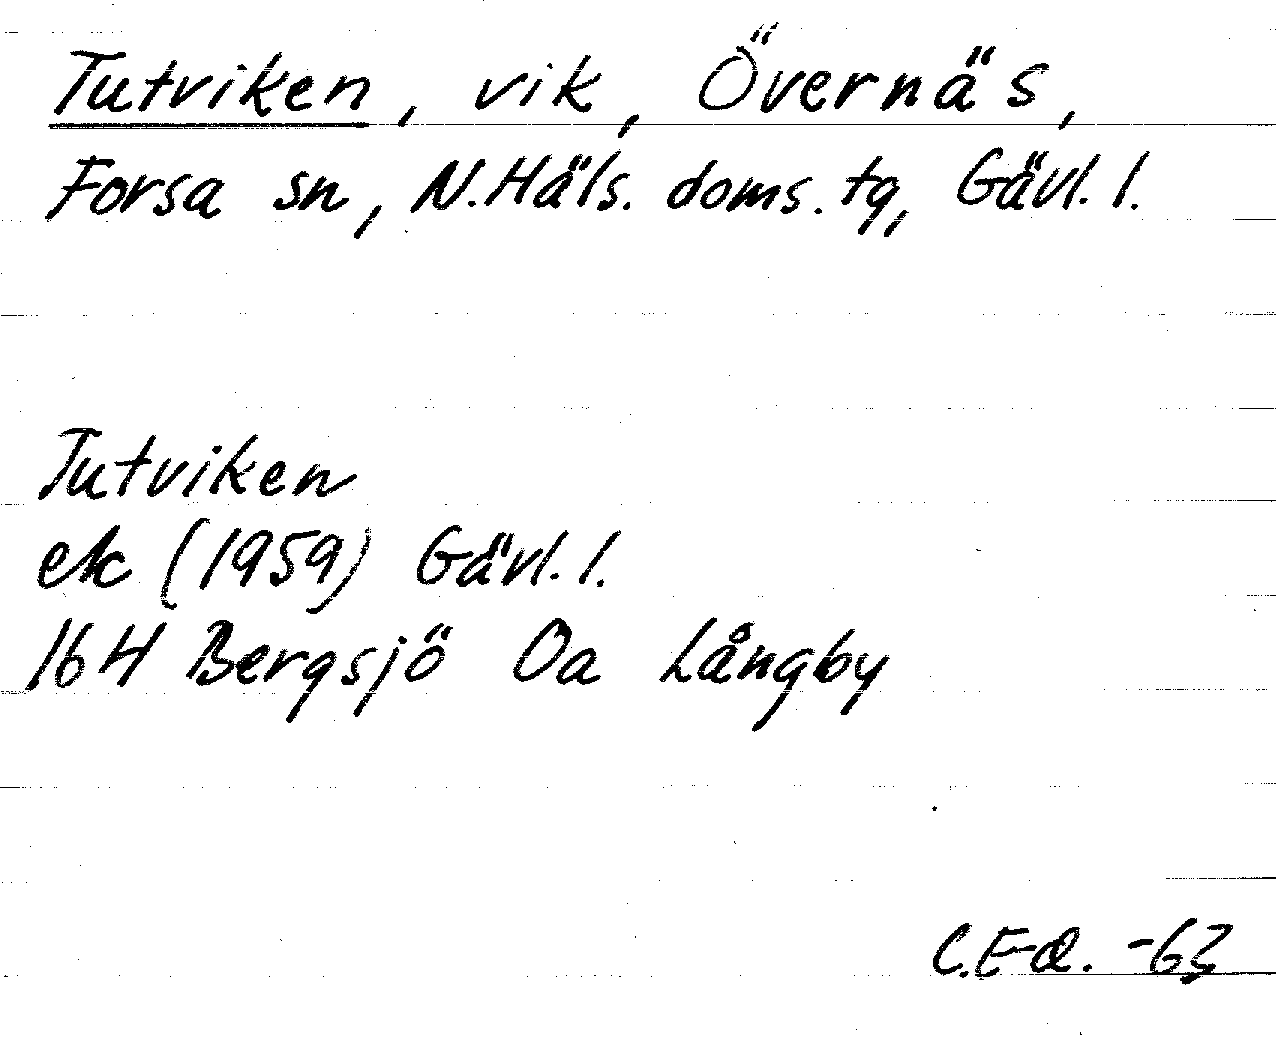 Tutviken, vik, Övernäs,
Forsa sn, N.Häls. doms. tg, Gävl. l.
Tutviken
ek (1959) Gävl. l.
16 H Bergsjö Oa Långby
C.E-Q. -63